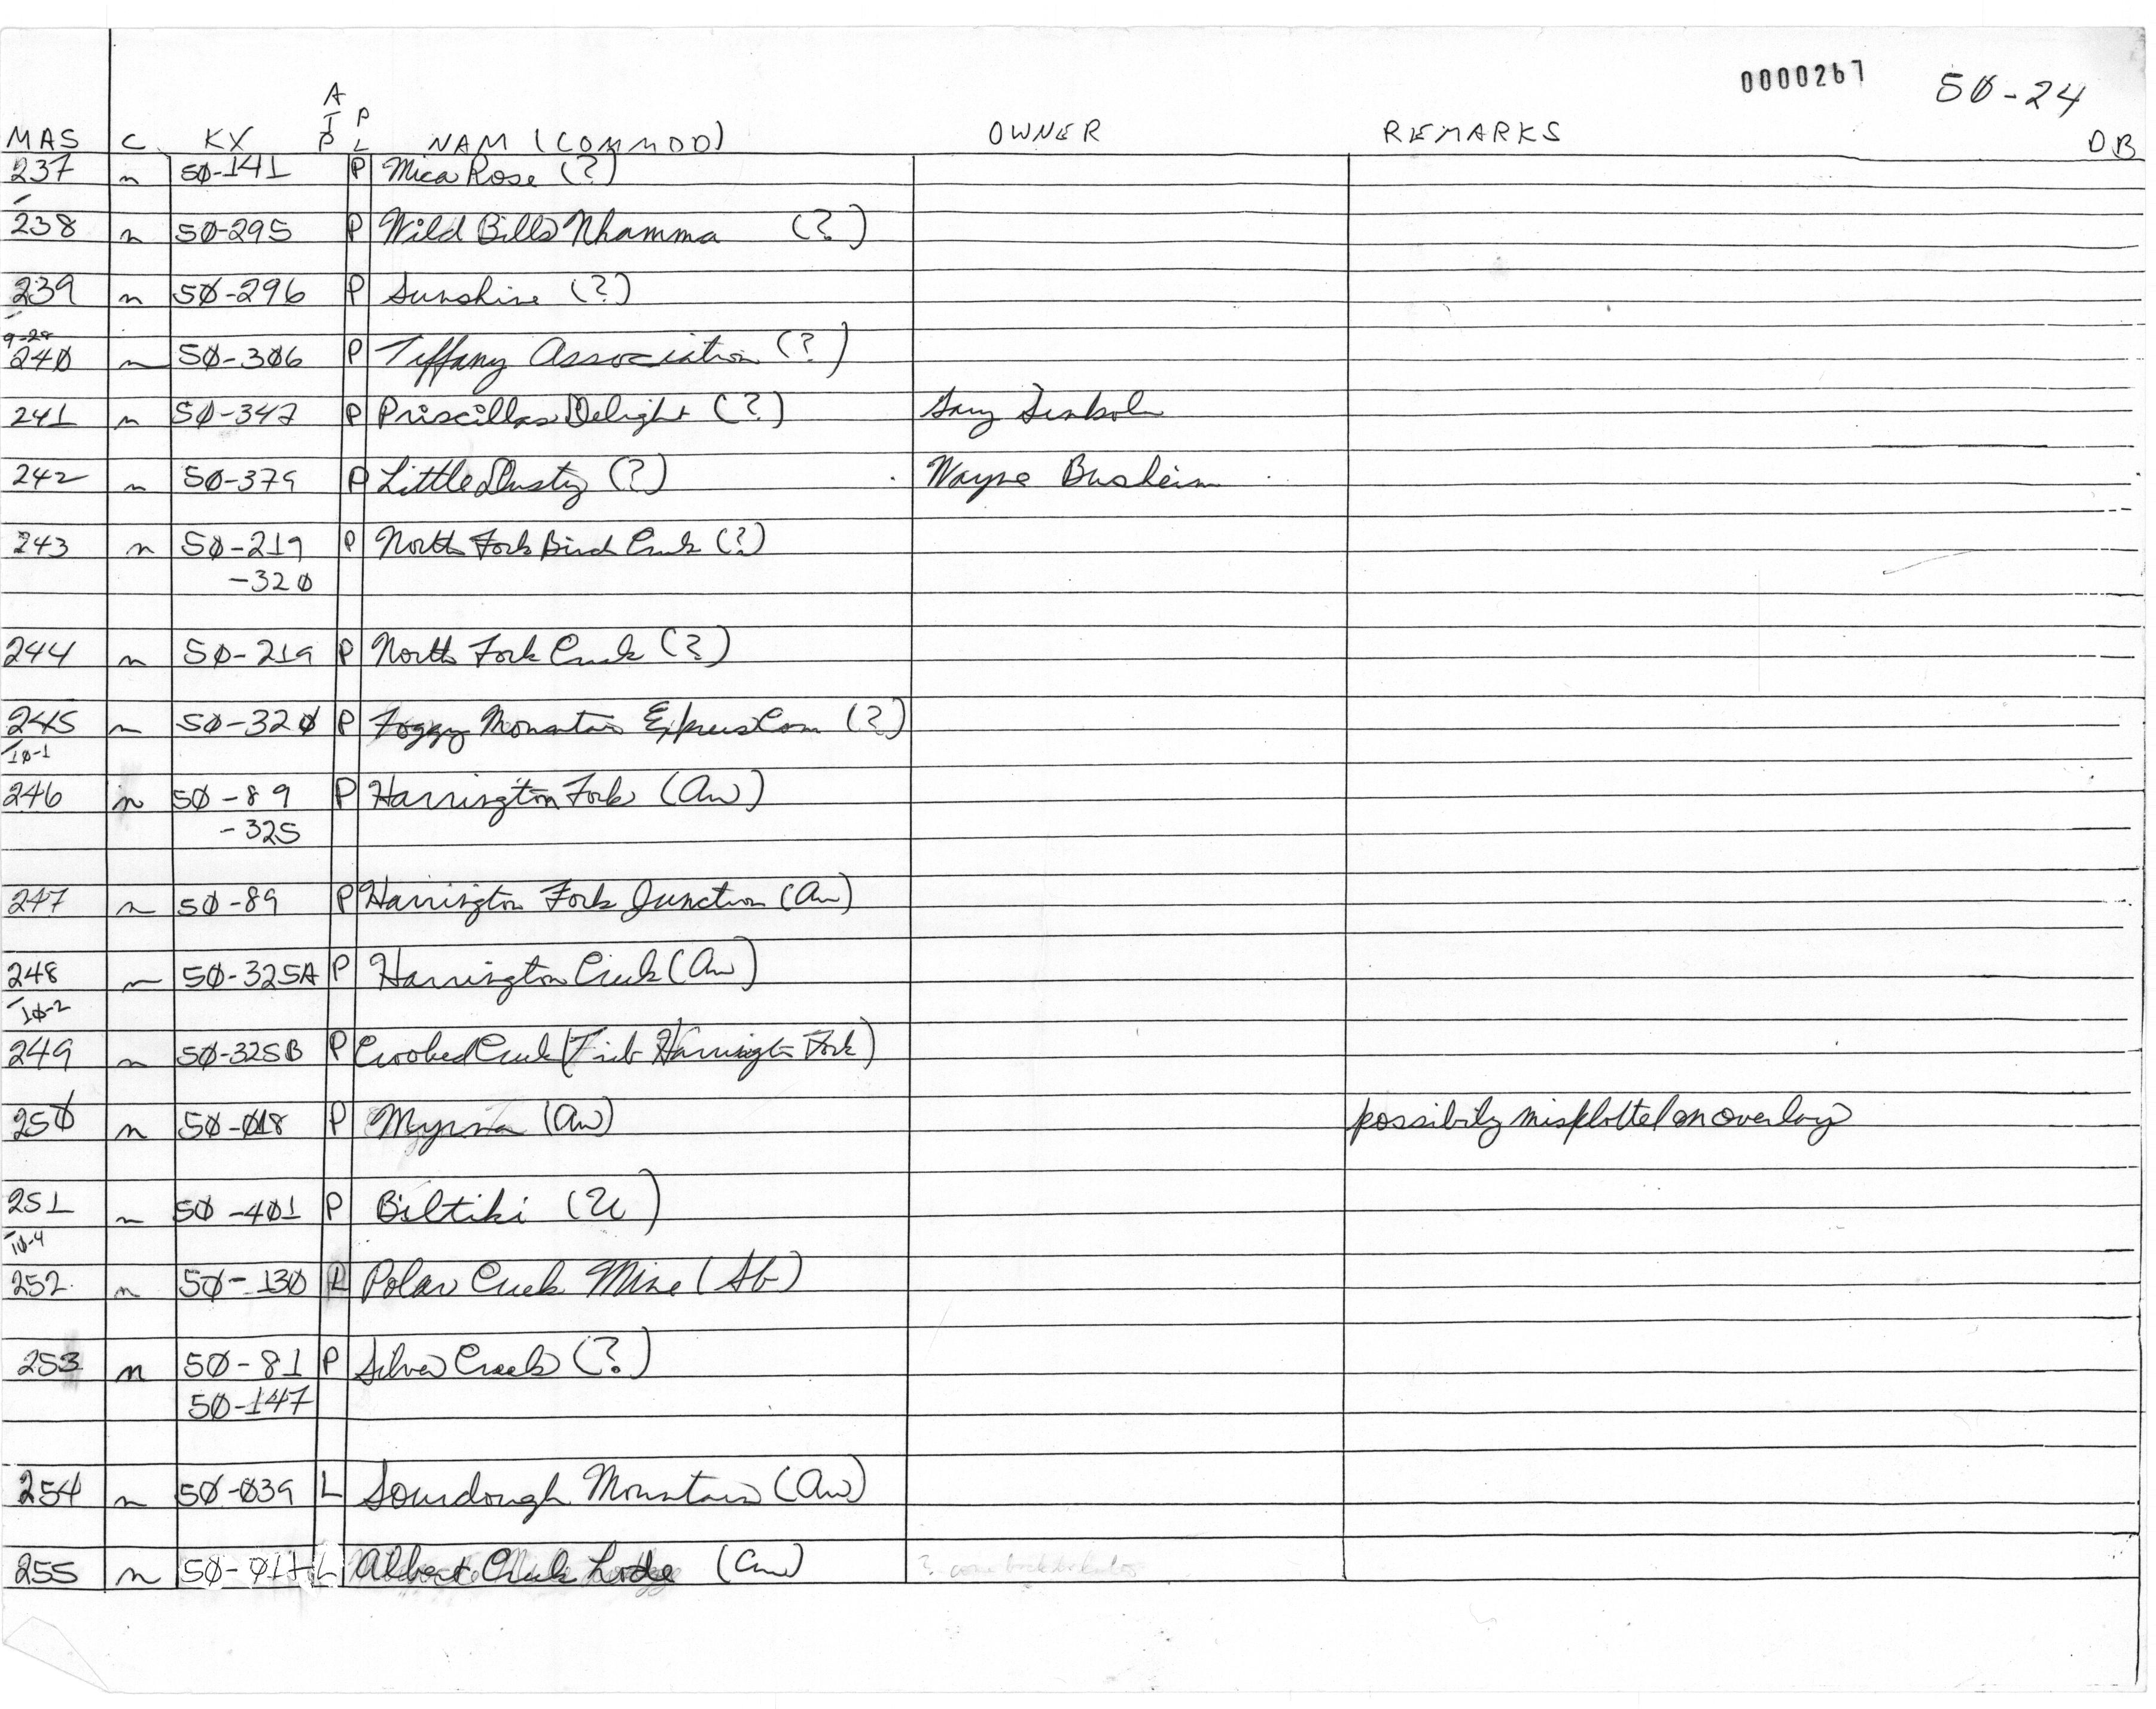 0000267 50-24
MAS C KX A/P P/L NAM (COMMOD) OWNER REMARKS DB
237 n 50-141 P Mica Rose (?)
238 n 50-295 P Wild Bills Nhamma (?)
239 n 50-296 P Sunshine (?)
9-28
240 n 50-306 P Tiffany Association (?)
241 n 50-347 P Priscillas Delight (?)
242 n 50-379 P Little Dusty (?) Wayne
243 n 50-219 P North Fork Birch Creek (?)
-320
244 n 50-219 P North Fork Creek (?)
245 n 50-320 P Foggy Mountain (?)
10-1
246 n 50-89 P Harrington Fork (Au)
-325
247 n 50-89 P Harrington Fork Junction (Au)
248 n 50-325A P Harrington Creek (Au)
10-2
249 n 50-325B P Crooked Creek (Trib Harrington Fork)
250 n 50-018 P Myrna (Au) possibily misplotted on overlay
251 n 50-401 P Biltiki (U)
10-4
252 n 50-130 L Polar Creek Mine (Sb)
253 n 50-81 P Silver Creek (?)
50-147
254 n 50-039 L Sourdough Mountain (Au)
255 n 50-011 L Albert Creek Lode (Au)